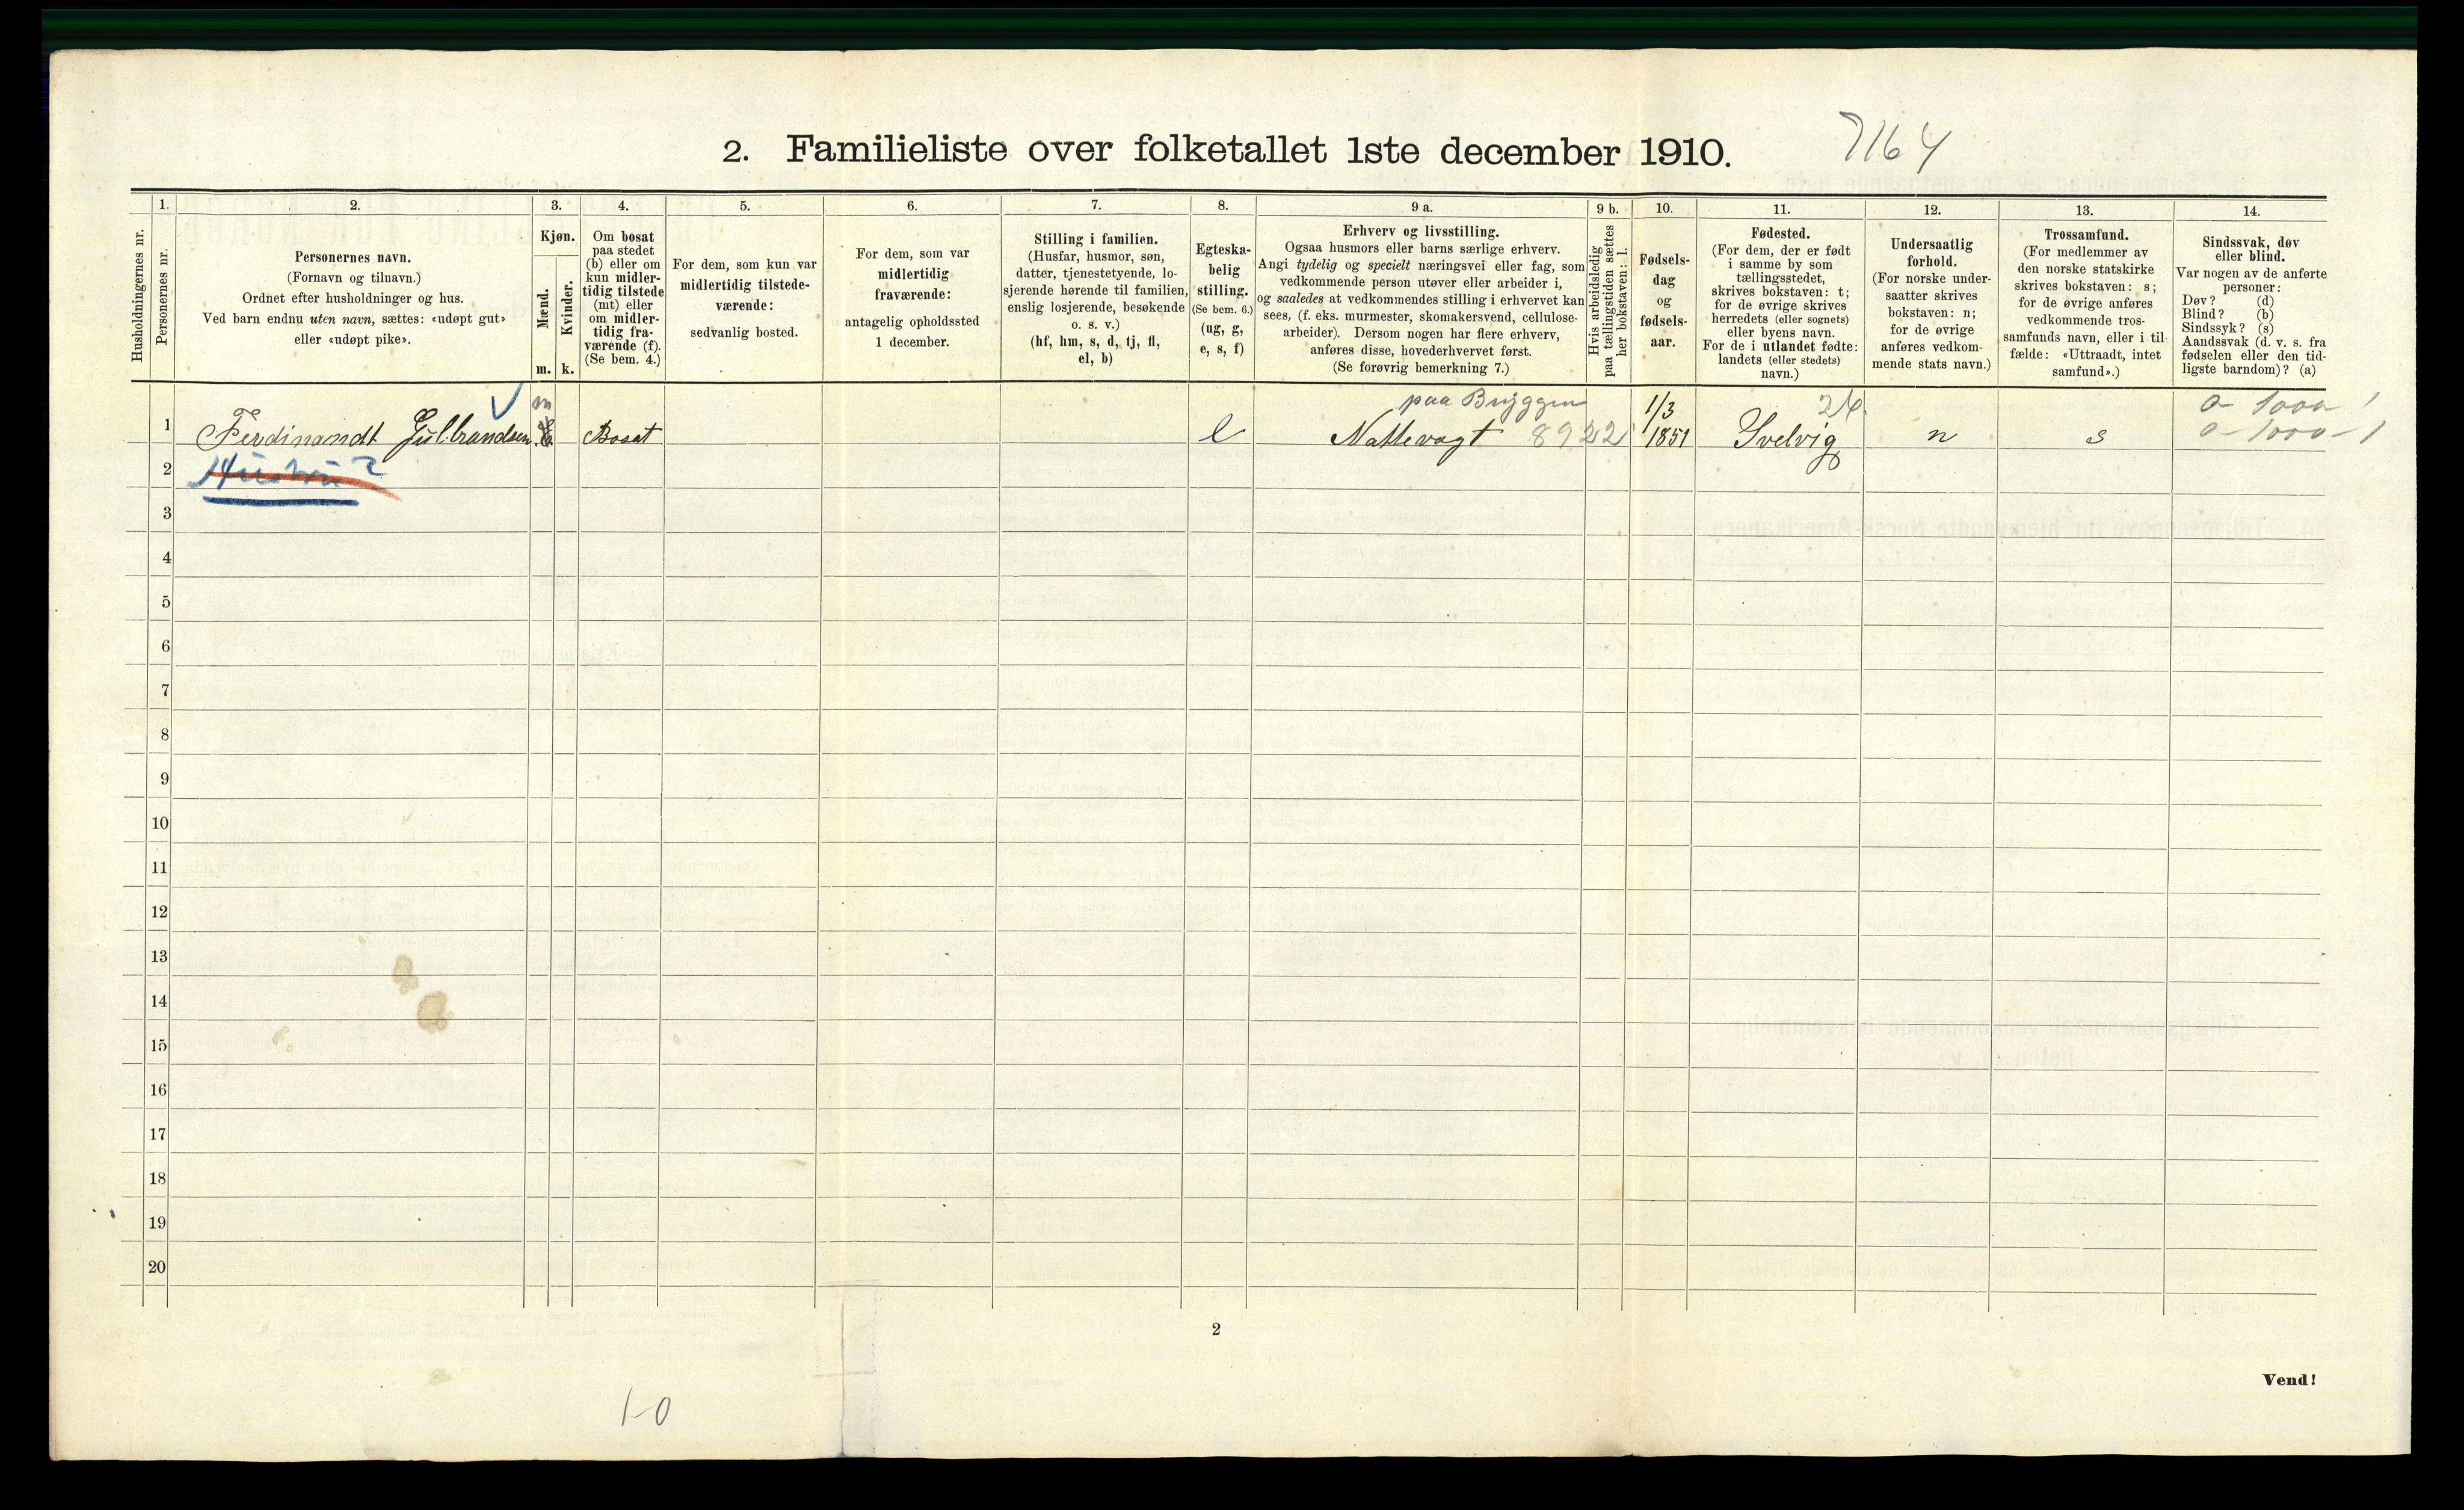 7164
2. Familieliste over folketallet 1ste december 1910.
Husholdningernes nr.
1.
Personernes nr.
2.
Personernes navn.
(Fornavn og tilnavn.)
Ordnet efter husholdninger og hus.
Ved barn endnu uten navn, sættes: «udøpt gut»
eller «udøpt pike».
3.
Kjøn.
Mænd.
Kvinder.
m. k.
4.
Om bosat
paa stedet
(b) eller om
kun midler-
tidig tilstede
(mt) eller
om midler-
tidig fra-
værende (f).
(Se bem. 4.)
5.
For dem, som kun var
midlertidig tilstede-
værende:
sedvanlig bosted.
6.
For dem, som var
midlertidig
fraværende:
antagelig opholdssted
1 december.
7.
Stilling i familien.
(Husfar, husmor, søn,
datter, tjenestetyende, lo-
sjerende hørende til familien,
enslig losjerende, besøkende
o. s. v.)
(hf, hm, s, d, tj, fl,
el, b)
8.
Egteska-
belig
stilling.
(Se bem. 6.)
(ug, g,
e, s, f)
9 a.
Erhverv og livsstilling.
Ogsaa husmors eller barns særlige erhverv.
Angi tydelig og specielt næringsvei eller fag, som
vedkommende person utøver eller arbeider i,
og saaledes at vedkommendes stilling i erhvervet kan
sees, (f. eks. murmester, skomakersvend, cellulose-
arbeider). Dersom nogen har flere erhverv,
anføres disse, hovederhvervet først.
(Se forøvrig bemerkning 7.)
9 b.
Hvis arbeidsledig
paa tællingstiden sættes
her bokstaven: l.
10.
Fødsels-
dag
og
fødsels-
aar.
11.
Fødested.
(For dem, der er født
i samme by som
tællingsstedet,
skrives bokstaven: t;
for de øvrige skrives
herredets (eller sognets)
eller byens navn.
For de i utlandet fødte:
landets (eller stedets)
navn.)
12.
Undersaatlig
forhold.
(For norske under-
saatter skrives
bokstaven: n;
for de øvrige
anføres vedkom-
mende stats navn.)
13.
Trossamfund.
(For medlemmer av
den norske statskirke
skrives bokstaven: s;
for de øvrige anføres
vedkommende tros-
samfunds navn, eller i til-
fælde: «Uttraadt, intet
samfund».)
14.
Sindssvak, døv
eller blind.
Var nogen av de anførte
personer:
Døv? (d)
Blind? (b)
Sindssyk? (s)
Aandssvak (d. v. s. fra
fødselen eller den tid-
ligste barndom)? (a)
m paa Bryggen 1/3 0-1000-1
1 Ferdinandt Gulbrandsen Bosat e Nattevagt 8922 1851 Svelvig n s 0-1000-1
2
3
4
5
6
7
8
9
10
11
12
13
14
15
16
17
18
19
20
2
Vend!
1-0